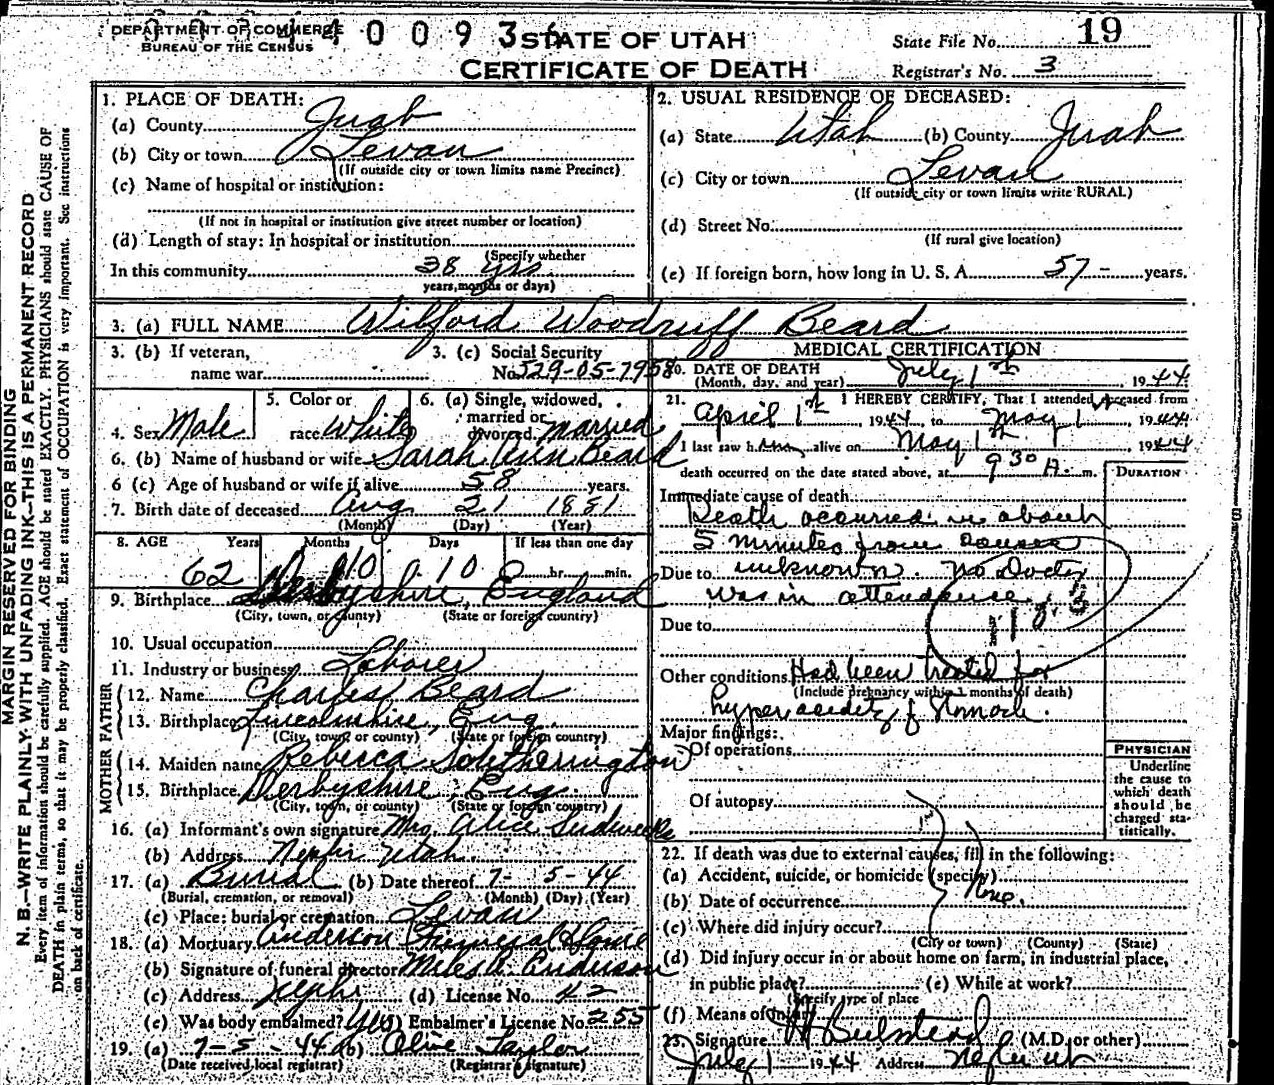 DEPARTMENT OF COMMERCE
BUREAU OF THE CENSUS
4 0 0 9 3
STATE OF UTAH
CERTIFICATE OF DEATH
State File No. 19
Registrar's No. 3
MARGIN RESERVED FOR BINDING
N. B.—WRITE PLAINLY WITH UNFADING INK—THIS IS A PERMANENT RECORD
Every item of information should be carefully supplied. AGE should be stated EXACTLY. PHYSICIANS should state CAUSE OF
DEATH in plain terms, so that it may be properly classified. Exact statement of OCCUPATION is very important. See instructions
on back of certificate.
1. PLACE OF DEATH:
(a) County Juab
(b) City or town Levan
(If outside city or town limits name Precinct)
(c) Name of hospital or institution:
(If not in hospital or institution give street number or location)
(d) Length of stay: In hospital or institution
(Specify whether
In this community 38 yrs
years, months or days)
2. USUAL RESIDENCE OF DECEASED:
(a) State Utah (b) County Juab
(c) City or town Levan
(If outside city or town limits write RURAL)
(d) Street No.
(If rural give location)
(e) If foreign born, how long in U. S. A. 57 - years.
3. (a) FULL NAME Wilford Woodruff Beard
3. (b) If veteran,
name war
3. (c) Social Security
No. 529-05-7958
4. Sex Male
5. Color or
race White
6. (a) Single, widowed,
married or
divorced married
6. (b) Name of husband or wife Sarah Ann Beard
6 (c) Age of husband or wife if alive 58 years.
7. Birth date of deceased Aug 21 1881
(Month) (Day) (Year)
8. AGE Years Months Days If less than one day
62 10 10 hr. min.
9. Birthplace Derbyshire, England
(City, town, or county) (State or foreign country)
10. Usual occupation
11. Industry or business Laborer
FATHER
12. Name Charles Beard
13. Birthplace Lincolnshire, Eng.
(City, town or county) (State or foreign country)
MOTHER
14. Maiden name Rebecca Southerington
15. Birthplace Derbyshire, Eng.
(City, town, or county) (State or foreign country)
16. (a) Informant's own signature Mrs. Alice Sudweeks
(b) Address Nephi Utah.
17. (a) Burial (b) Date thereof 7- 5-44
(Burial, cremation, or removal) (Month) (Day) (Year)
(c) Place: burial or cremation Levan
18. (a) Mortuary Anderson Funeral Home
(b) Signature of funeral director Miles A. Anderson
(c) Address Nephi (d) License No. 42
(e) Was body embalmed? Yes (f) Embalmer's License No. 255
19. (a) 7-5-44 (b) Olive Taylor
(Date received local registrar) (Registrar's signature)
MEDICAL CERTIFICATION
20. DATE OF DEATH
(Month, day, and year) July 1st, 1944
21. I HEREBY CERTIFY, That I attended deceased from
April 1st, 1944, to May 1, 1944
I last saw him alive on May 1st, 1944
death occurred on the date stated above, at 9 30 A. m.
DURATION
Immediate cause of death
Death occurred in about
5 minutes from causes
Due to unknown. No Doctor
was in attendance.
Due to
Other conditions Had been treated for
(Include pregnancy within 3 months of death)
hyperacidity of stomach.
Major findings:
Of operations
Of autopsy
PHYSICIAN
Underline
the cause to
which death
should be
charged sta-
tistically.
22. If death was due to external causes, fill in the following:
(a) Accident, suicide, or homicide (specify)
None.
(b) Date of occurrence
(c) Where did injury occur?
(City or town) (County) (State)
(d) Did injury occur in or about home on farm, in industrial place,
in public place? (e) While at work?
(Specify type of place
(f) Means of injury
23. Signature (M.D. or other)
July 1 1944 Address Nephi Ut